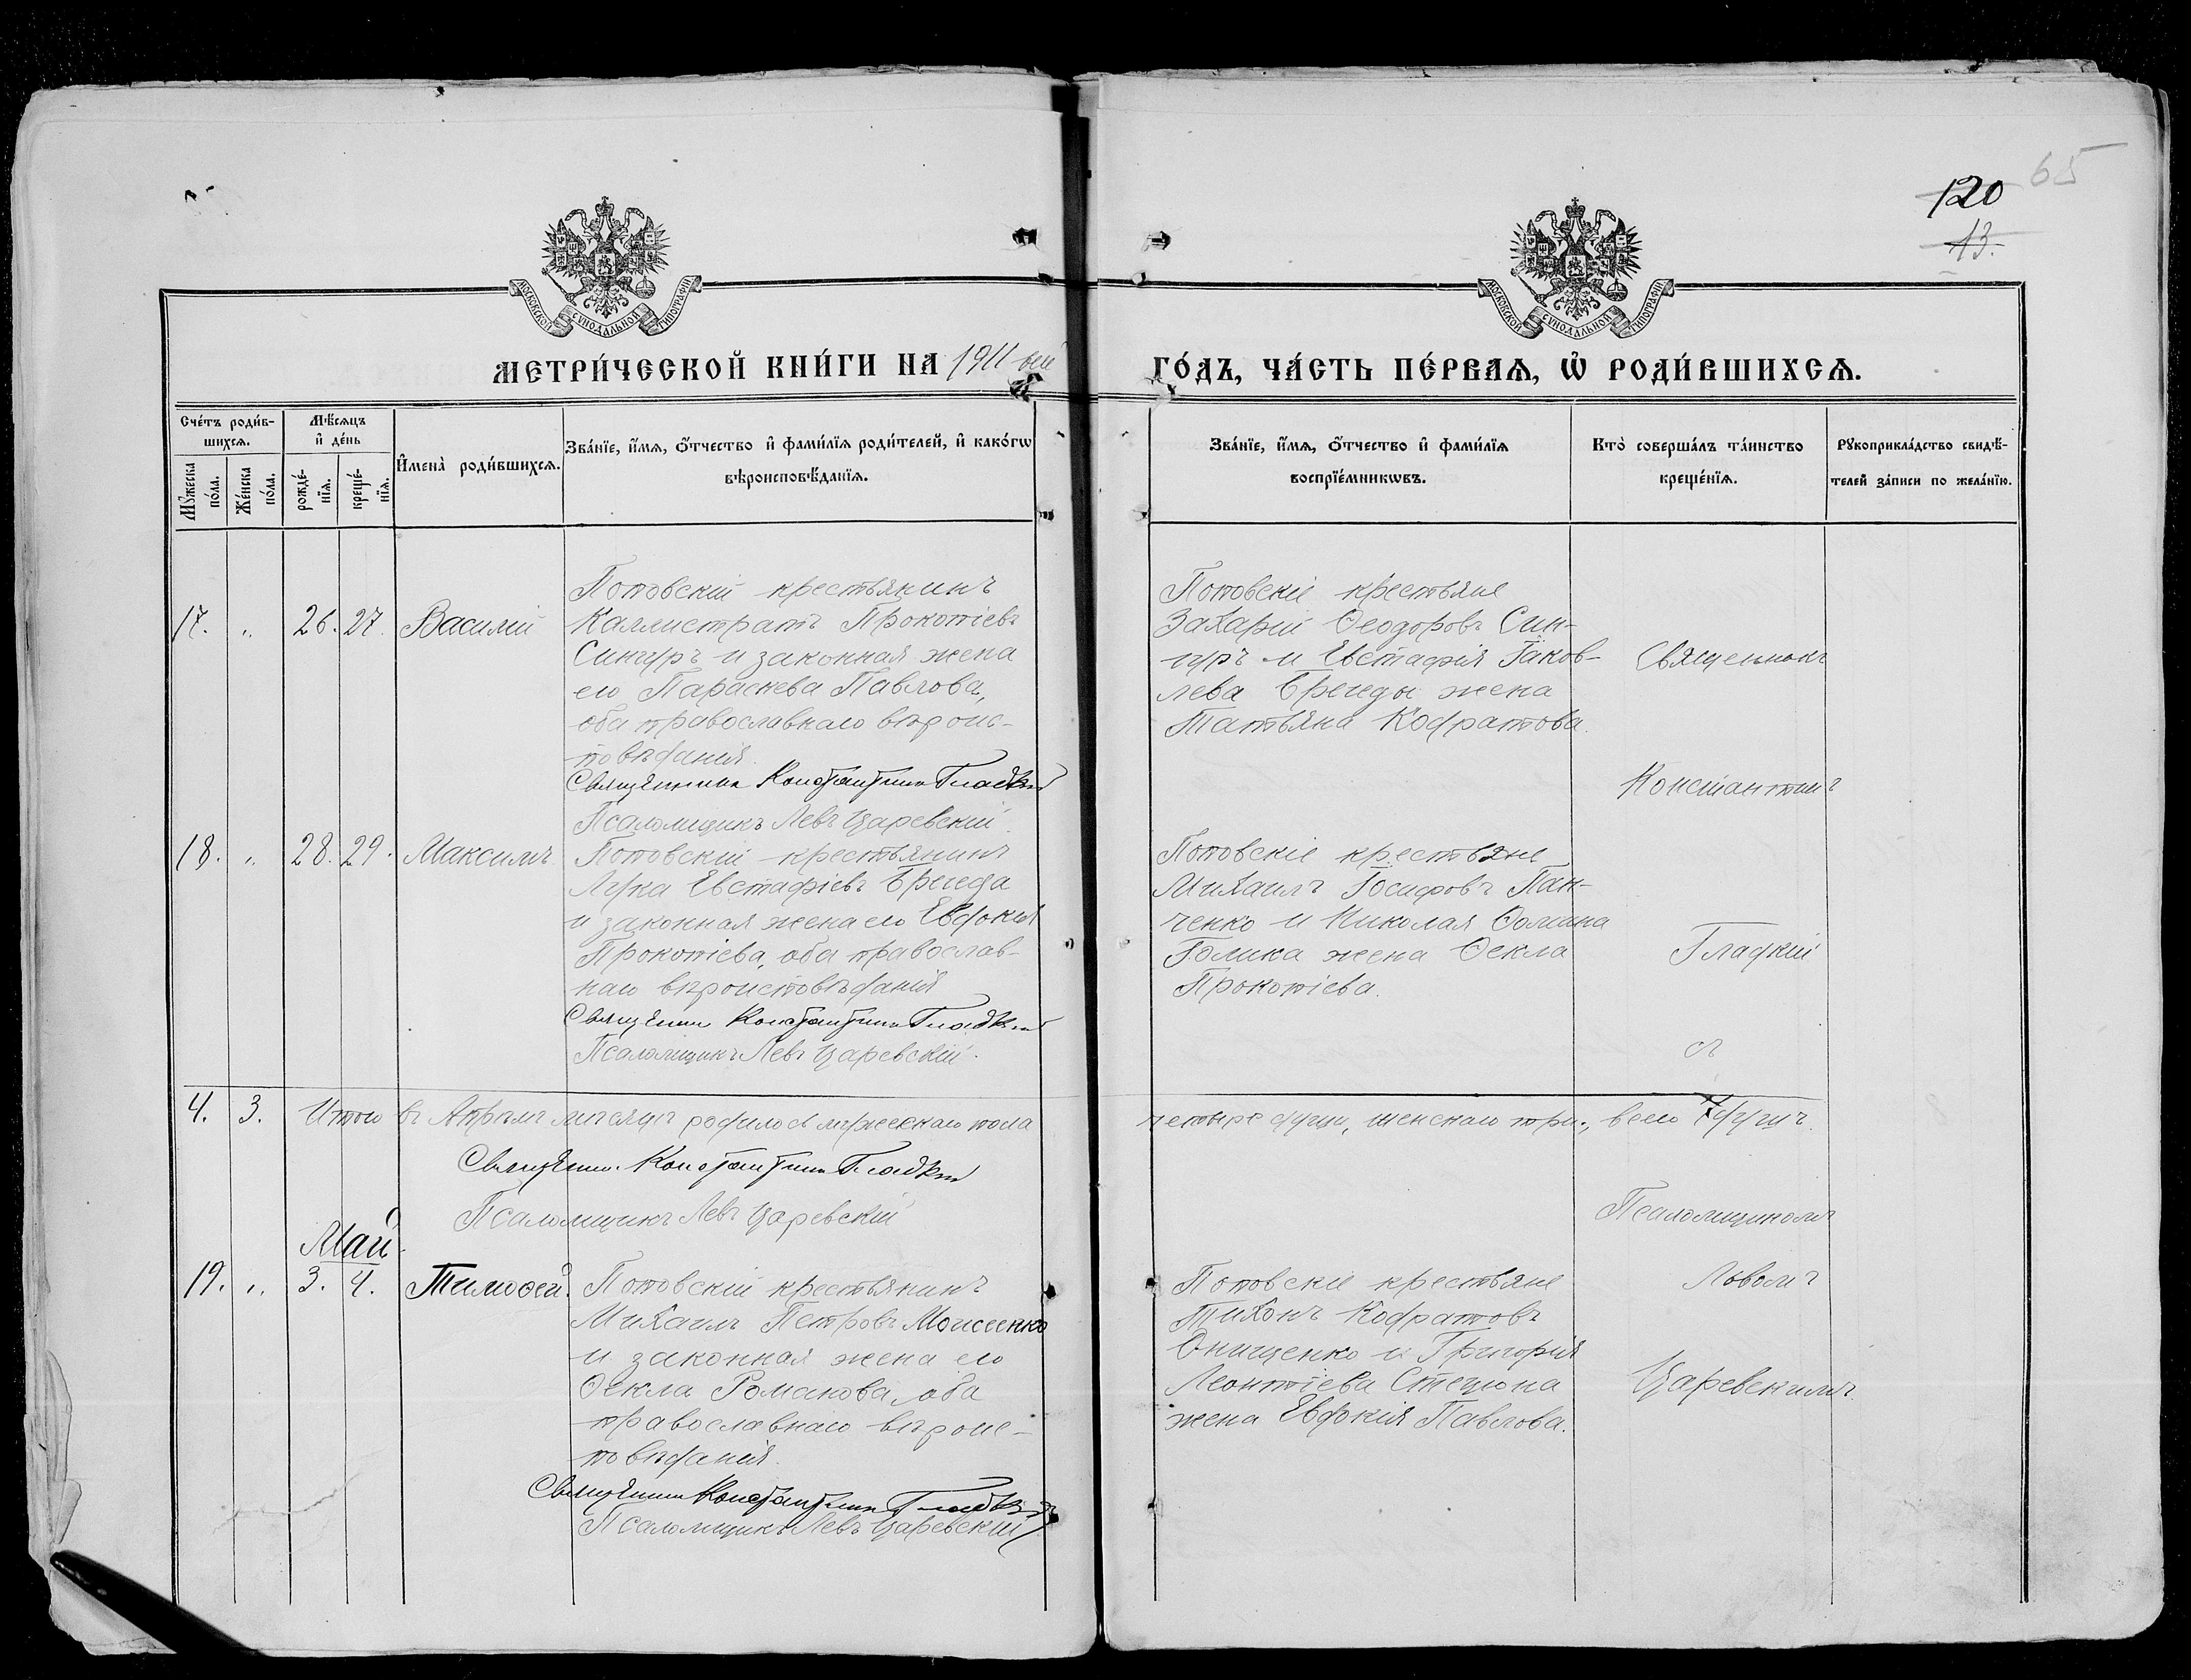 65
120
13.
МОСКОВСКОЙ СѴНОДАЛЬНОЙ ТИПОГРАФІИ
МОСКОВСКОЙ СѴНОДАЛЬНОЙ ТИПОГРАФІИ
МЕТРИ́ЧЕСКОЙ КНИ́ГИ НА 1911 вый
ГО́ДЪ, ЧА́СТЬ ПЕ́РВАѦ, Ѡ҆ РОДИ́ВШИХСѦ.
Сче́тъ роди́в-
шихсѧ.
Мѣ́сѧцъ
и҆ де́нь
Мꙋ́жеска
по́ла.
Же́нска
по́ла.
рожде́-
нїѧ.
креще́-
нїѧ.
И҆мена̀ роди́вшихсѧ.
Зва́нїе, и҆́мѧ, ѻ҆́тчество и҆ фами́лїѧ роди́телей, и҆ како́гѡ
вѣроисповѣ́данїѧ.
Зва́нїе, и҆́мѧ, ѻ҆́тчество и҆ фами́лїѧ
воспрїе́мникѡвъ.
Кто̀ соверша́лъ та́инство
креще́нїѧ.
Рꙋкоприкла́дство свидѣ́-
телей за́писи по жела́нїю.
17. „ 26. 27. Василій
Поповскій крестьянинъ
Каллистратъ Прокопіевъ
Сингуръ и законная жена
его Параскева Павлова,
оба православнаго вѣроис-
повѣданія.
Священникъ Константинъ Гладкій
Псаломщикъ Левъ Царевскій.
Поповскіе крестьяне
Захарій Ѳеодоровъ Син-
гуръ и Евстафія Іаков-
лева Брегеды жена
Татьяна Кодратова.
Священникъ
Константинъ
18. „ 28. 29. Максимъ
Поповскій крестьянинъ
Лука Евстафіевъ Брегеда
и законная жена его Евдокія
Прокопіева, оба православ-
наго вѣроисповѣданія
Священникъ Константинъ Гладкій
Псаломщикъ Левъ Царевскій.
Поповскіе крестьяне
Михаилъ Іосифовъ Пан-
ченко и Николая Ѳомина
Голика жена Ѳекла
Прокопіева.
Гладкій
съ
4. 3. Итого въ Апрѣлѣ мѣсяцѣ родилось мужескаго пола
четыре души, женскаго три, всего 7 душъ.
Священникъ Константинъ Гладкій
Псаломщикъ Левъ Царевскій
Псаломщикомъ
Май
19. „ 3. 4. Тимоѳей.
Поповскій крестьянинъ
Михаилъ Петровъ Моисеенко
и законная жена его
Ѳекла Романова, оба
православнаго вѣроис-
повѣданія.
Священникъ Константинъ Гладкій
Псаломщикъ Левъ Царевскій
Поповскіе крестьяне
Тихонъ Кодратовъ
Онищенко и Григорія
Леонтіева Стецюна
жена Евдокія Павлова.
Львомъ
Царевскимъ